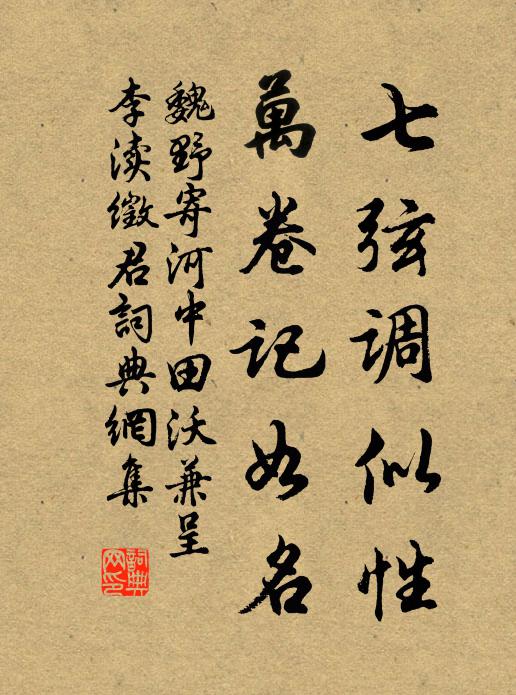 七弦调似性
萬卷記如名
魏野寄河中田沃兼呈
李渎徵君詞典網集
詞典網印